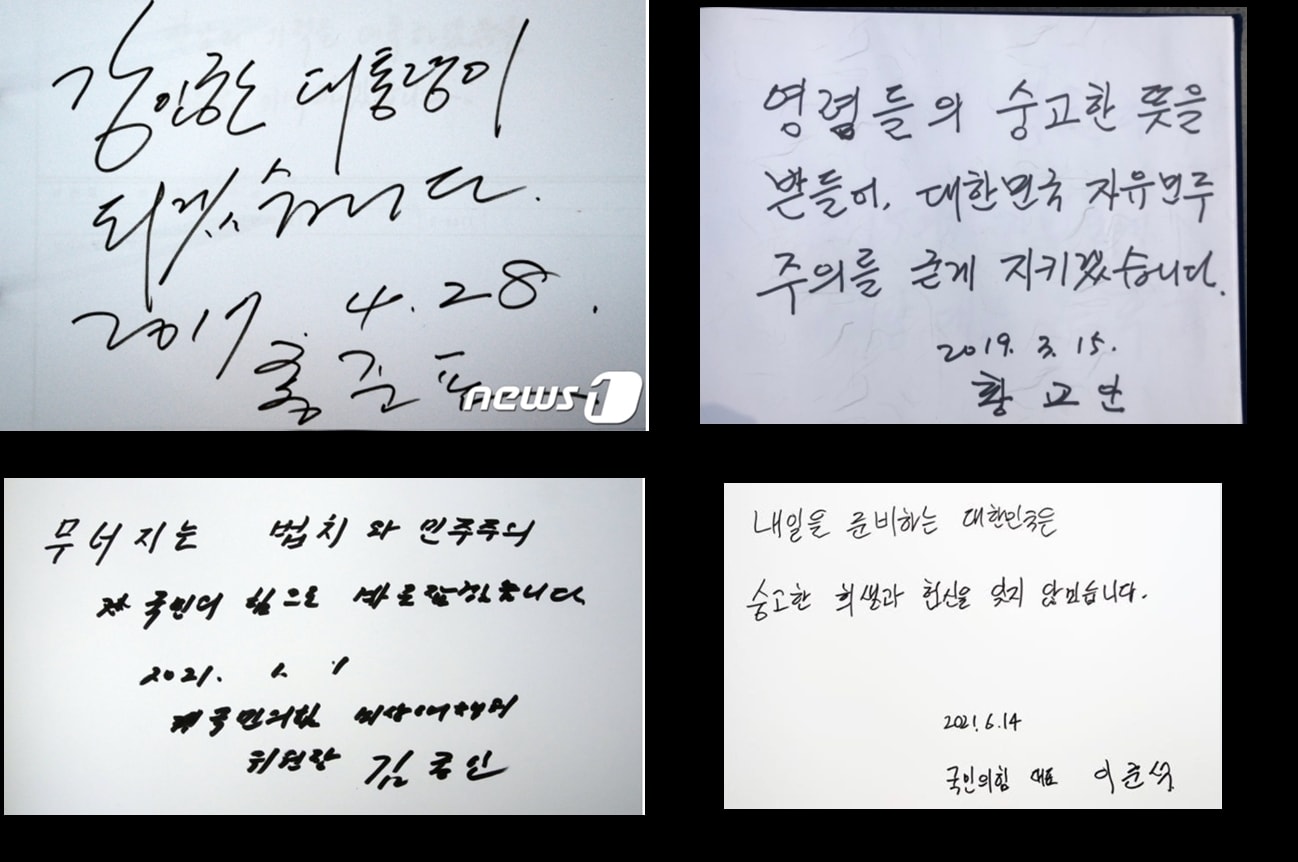 강인한 대통령이
되겠습니다.
2017 4.28.
홍준표
news1
영령들의 숭고한 뜻을
받들어, 대한민국 자유민주
주의를 굳게 지키겠습니다.
2019. 3. 15.
황교안
무너지는 법치와 민주주의
국민의 힘으로 바로잡겠습니다
2021. 1. 1
국민의힘 비상대책위
위원장 김종인
내일을 준비하는 대한민국은
숭고한 희생과 헌신을 잊지 않았습니다.
2021.6.14
국민의힘 대표 이준석